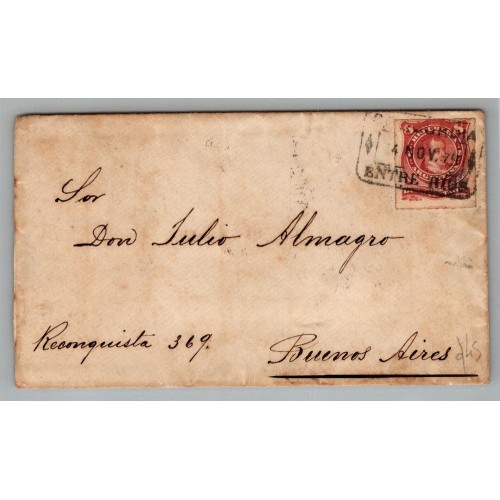 4 NOV. 79
ENTRE RIOS
Sor
Don Julio Almagro
Reconquista 369.
Buenos Aires